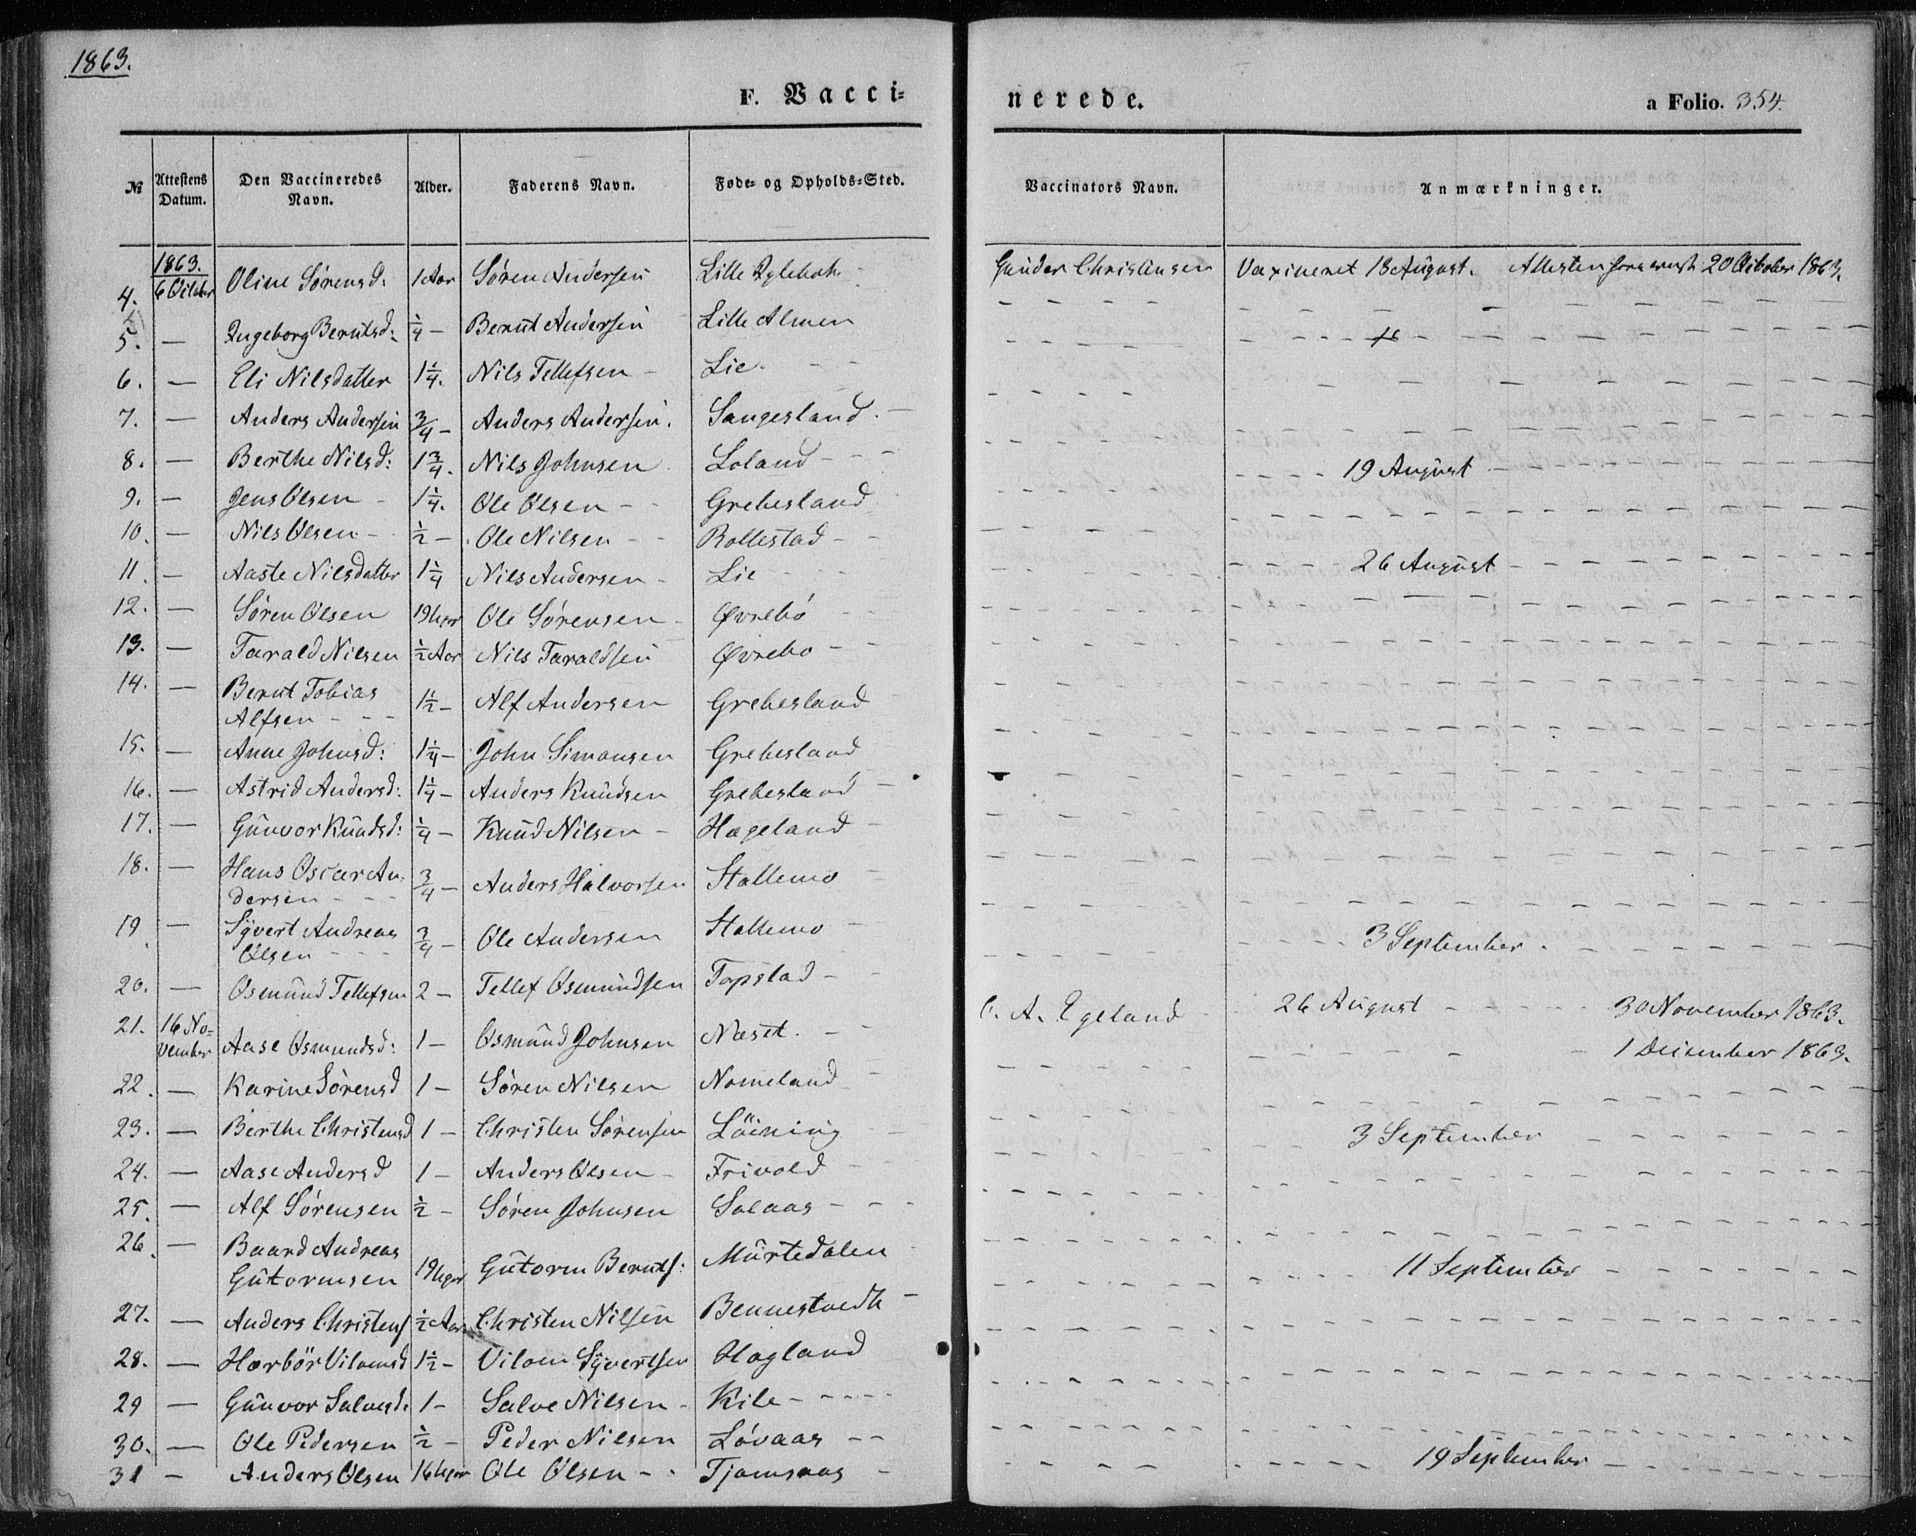 1863.
F. Vacci=
nerede.
a Folio. 354.
№ Attestens Datum. Den Vaccineredes Navn. Alder. Faderens Navn. Føde= og Opholds=Sted. Vaccinators Navn. Anmærkninger.
1863.
4. 6 October Oline Sørensd: 1 Aar Søren Andersen Lille Gunder Christensen Vaxineret 18 August. Attesten 20 October 1863.
5. — Ingeborg Berntsd: ¼ — Bernt Andersen Lille Almen
6. — Eli Nilsdatter 1¼. Nils Tellefsen — Lie. — —
7. — Anders Andersen ¾ — Anders Andersen. Sangesland. —
8. — Berthe Nilsd: 1¾. Nils Johnsen Loland — — — 19 August
9. — Jens Olsen — 1¼. Ole Olsen — — Grebesland
10. — Nils Olsen — ½ — Ole Nilsen — — Rollestad — —
11. — Aaste Nilsdatter 1¼ Nils Andersen — Lie — — — 26 August
12. — Søren Olsen 19 Uger Ole Sørensen — Øvrebö — —
13. — Tarald Nilsen ½ Aar Nils Taraldsen Øvrebo — —
14. — Bernt Tobias
Alfsen — — — 1½ — Alf Andersen Grebesland
15. — Anne Johnsd: 1¼ — John Simonsen Grebesland
16. — Astrid Andersd: 1¼ — Anders Knudsen Grebesland —
17. — Gunvor Knudsd: ¼ — Knud Nilsen — Hageland —
18. — Hans Oscar An-
dersen — — — ¾ — Anders Halvorsen Stallemo —
19 — Syvert Andreas
Olsen — — — ¾ — Ole Andersen Stallemo — 3 September.
20. — Osmund Tellefsen 2 — Tellef Osmundsen Topstad — —
21. 16 No-
vember Aase Osmundsd: 1 — Osmund Johnsen Næset. — — C. A. Egeland 26 August 30 November 1863.
1 December 1863.
22. — Karine Sørensd 1 — Søren Nilsen Nomeland —
23. — Berthe Christensd 1 — Christen Sørensen Löining 3 September
24. — Aase Andersd 1 — Anders Olsen — Frivold —
25. — Alf Sørensen ½ — Søren Johnsen Solaas — — —
26. — Baard Andreas
Gutormsen 19 Uger Gutorm Bernts: Murtedalen 11 September
27. — Anders Christens ½ Aar Christen Nilsen Bennestvedt —
28. — Hærbör Vilomsd 1½ — Vilom Syvertsen Hagland
29 — Gunvor Salvesd: 1 — Salve Nilsen — Kile — — — —
30. — Ole Pedersen ½ — Peder Nilsen Lövaas — —
31 — Anders Olsen 16 Uger Ole Olsen — . Tjomsaas — 19 September